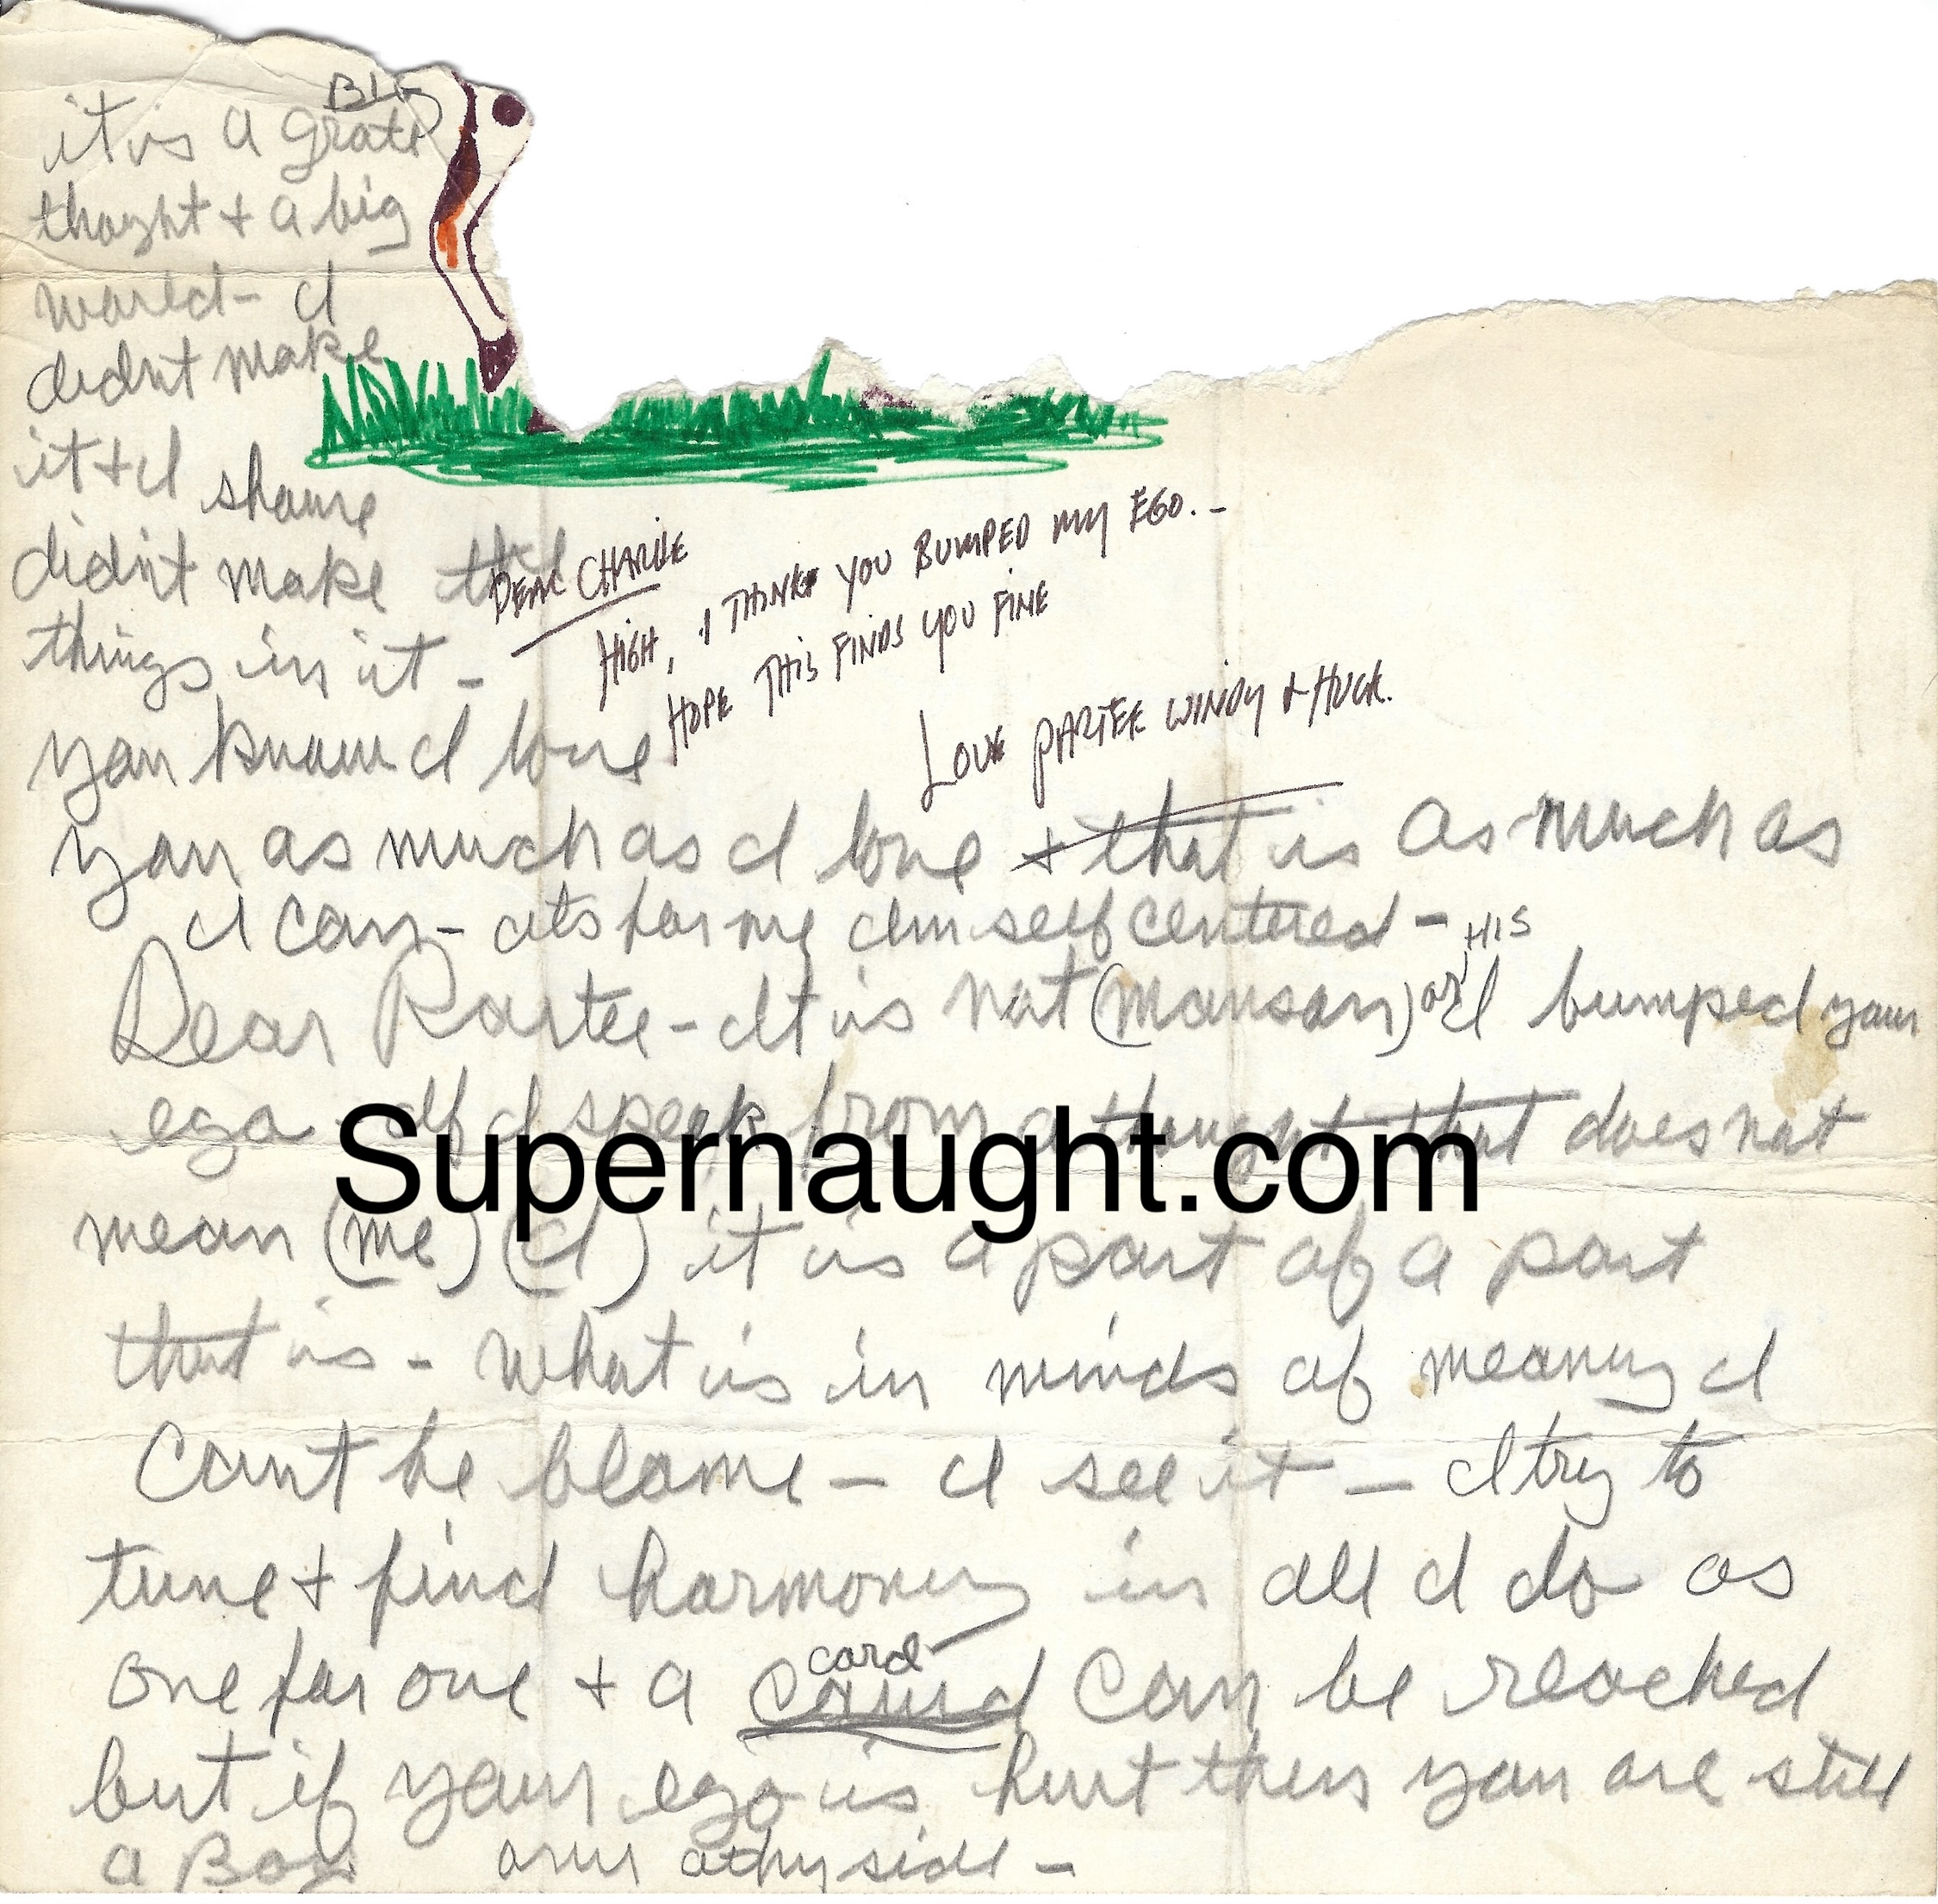 BIG
it is a grate
thoght + a big
world - I
didnt make
it + I shame
didnt make the
things in it -
you know I love
DEAR CHARLIE
HIGH, I THINK YOU BUMPED MY EGO. -
HOPE THIS FINDS YOU FINE
LOVE PARTEE WINDY & HUCK.
you as much as I love + that is as much as
I can - its for me Im self centered -
HIS
Dear Partee - It is not (manson) or I bumped your
ego If I speek from a thought that does not
Supernaught.com
mean (me) (I) it is a part of a part
that is - what is in minds of meaning I
Cant be blame - I see it - I try to
tune + find harmony in all I do as
card
one for one + a can be reached
but if your ego is hurt then you are still
a Boy side -